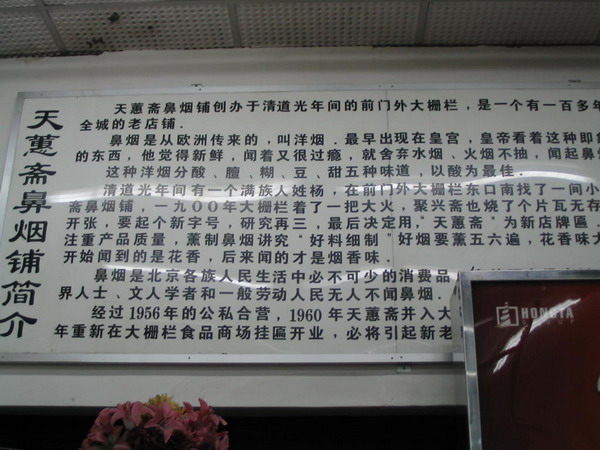 天蕙斋鼻烟铺简介
天蕙斋鼻烟铺创办于清道光年间的前门外大栅栏，是一个有一百多年
全城的老店铺．
鼻烟是从欧洲传来的，叫洋烟．最早出现在皇宫，皇帝看着这种即
的东西，他觉得新鲜，闻着又很过瘾，就舍弃水烟、火烟不抽，闻起鼻
这种洋烟分酸、膻、糊、豆、甜五种味道，以酸为最佳．
清道光年间有一个满族人姓杨，在前门外大栅栏东口南找了一间小
斋鼻烟铺，一九〇〇年大栅栏着了一把大火，聚兴斋也烧了个片瓦无存
开张，要起个新字号，研究再三，最后决定用，“天蕙斋”为新店牌匾．
注重产品质量，熏制鼻烟讲究“好料细制”好烟要薰五六遍，花香味大
开始闻到的是花香，后来闻的才是烟香味．
鼻烟是北京各族人民生活中必不可少的消费品
界人士、文人学者和一般劳动人民无人不闻鼻烟．
经过1956年的公私合营，1960年天蕙斋并入大
年重新在大栅栏食品商场挂匾开业，必将引起新老
HONGTA